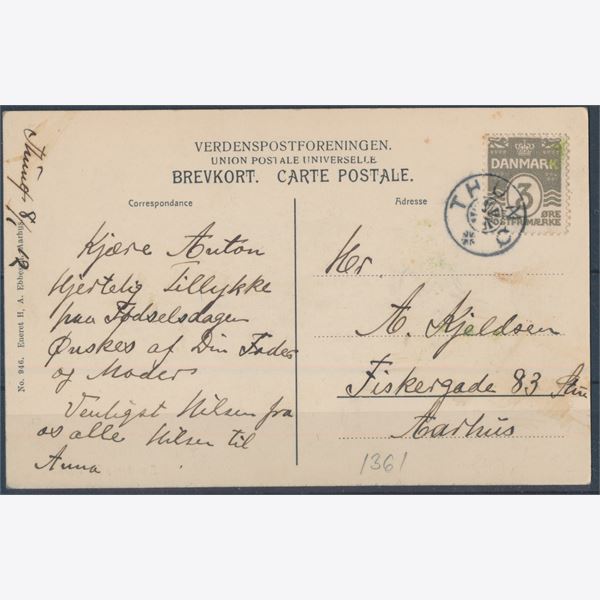 VERDENSPOSTFORENINGEN.
UNION POSTALE UNIVERSELLE
BREVKORT. CARTE POSTALE.
Correspondance
Adresse
DANMARK
3
ØRE
POSTFRIMÆRKE
8/
12
Kjære Anton
Hjertelig Tillykke
paa Fødselsdagen
Ønskes af Din Fader
og Moder
Venligst Hilsen fra
os alle Hilsen til
Anna
Hr.
A. Kjeldsen
Fiskergade 83
Aarhus
1361
No. 946. Eneret H. A. Ebbesen, Aarhus.